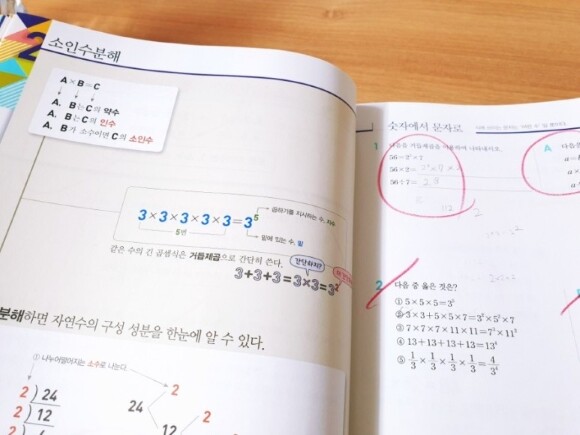 소인수분해
A×B=C
A, B는 C의 약수
A, B는 C의 인수
A, B가 소수이면 C의 소인수
곱하기를 지시하는 수, 지수
3×3×3×3×3=3⁵
5번
밑에 있는 수, 밑
같은 수의 긴 곱셈식은 거듭제곱으로 간단히 쓴다.
간단하지?
3+3+3=3×3=3²
분해하면 자연수의 구성 성분을 한눈에 알 수 있다.
① 나누어떨어지는 소수로 나눈다
2)24
2)12
24
2
2
12
숫자에서 문자로
1
다음을 거듭제곱을 이용하여 나타내시오.
56=2³×7
56×2=
56÷7=
A
다음을
2
다음 중 옳은 것은?
① 5×5×5=3⁵
② 3×3+5×5×7=3²×5²×7
③ 7×7×7×11×11=7³×11²
④ 13+13+13+13=13⁴
⑤ 1/3×1/3×1/3×1/3=4/3⁴